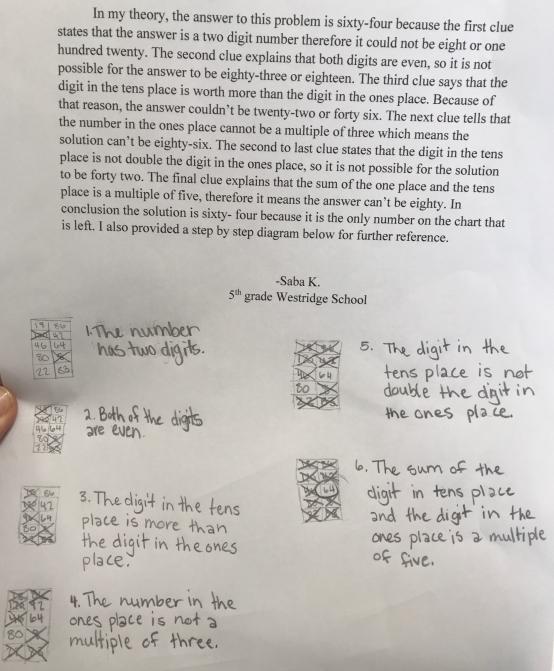 In my theory, the answer to this problem is sixty-four because the first clue
states that the answer is a two digit number therefore it could not be eight or one
hundred twenty. The second clue explains that both digits are even, so it is not
possible for the answer to be eighty-three or eighteen. The third clue says that the
digit in the tens place is worth more than the digit in the ones place. Because of
that reason, the answer couldn't be twenty-two or forty six. The next clue tells that
the number in the ones place cannot be a multiple of three which means the
solution can't be eighty-six. The second to last clue states that the digit in the tens
place is not double the digit in the ones place, so it is not possible for the solution
to be forty two. The final clue explains that the sum of the one place and the tens
place is a multiple of five, therefore it means the answer can't be eighty. In
conclusion the solution is sixty- four because it is the only number on the chart that
is left. I also provided a step by step diagram below for further reference.
-Saba K.
5th grade Westridge School
1. The number
has two digits.
86
42
46 64
80
22
2. Both of the digits
are even.
86
42
46 64
3. The digit in the tens
place is more than
the digit in the ones
place.
86
42
64
80
4. The number in the
ones place is not a
multiple of three.
42
64
80
5. The digit in the
tens place is not
double the digit in
the ones place.
64
80
6. The sum of the
digit in tens place
and the digit in the
ones place is a multiple
of five.
64